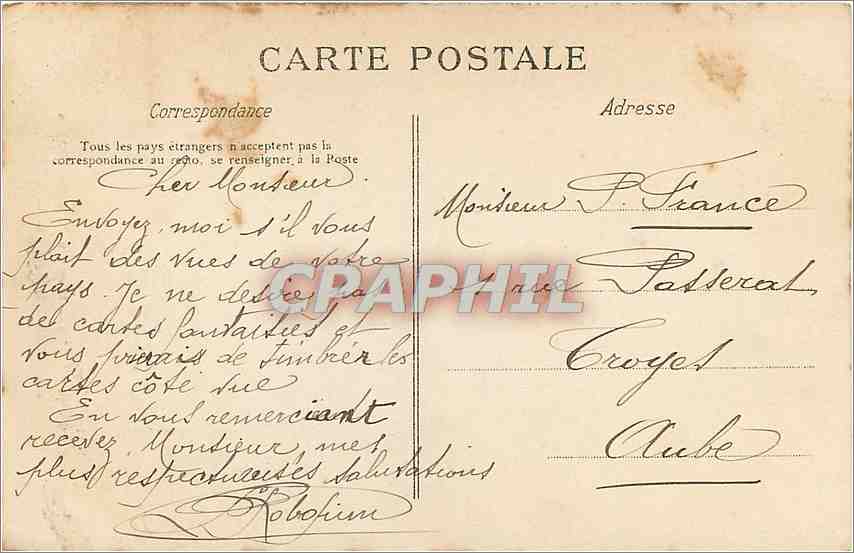 CARTE POSTALE
Correspondance
Adresse
Tous les pays étrangers n'acceptent pas la
correspondance au recto, se renseigner à la Poste
Cher Monsieur.
Envoyez moi s'il vous
plait des vues de votre
pays. Je ne desire pas
de cartes fantaisies et
vous prierais de timbrer les
cartes côté vue
En vous remerciant
recevez Monsieur mes
plus respectueuses salutations
Monsieur P. France
rue Passerat
Troyes
Aube
CPAPHIL